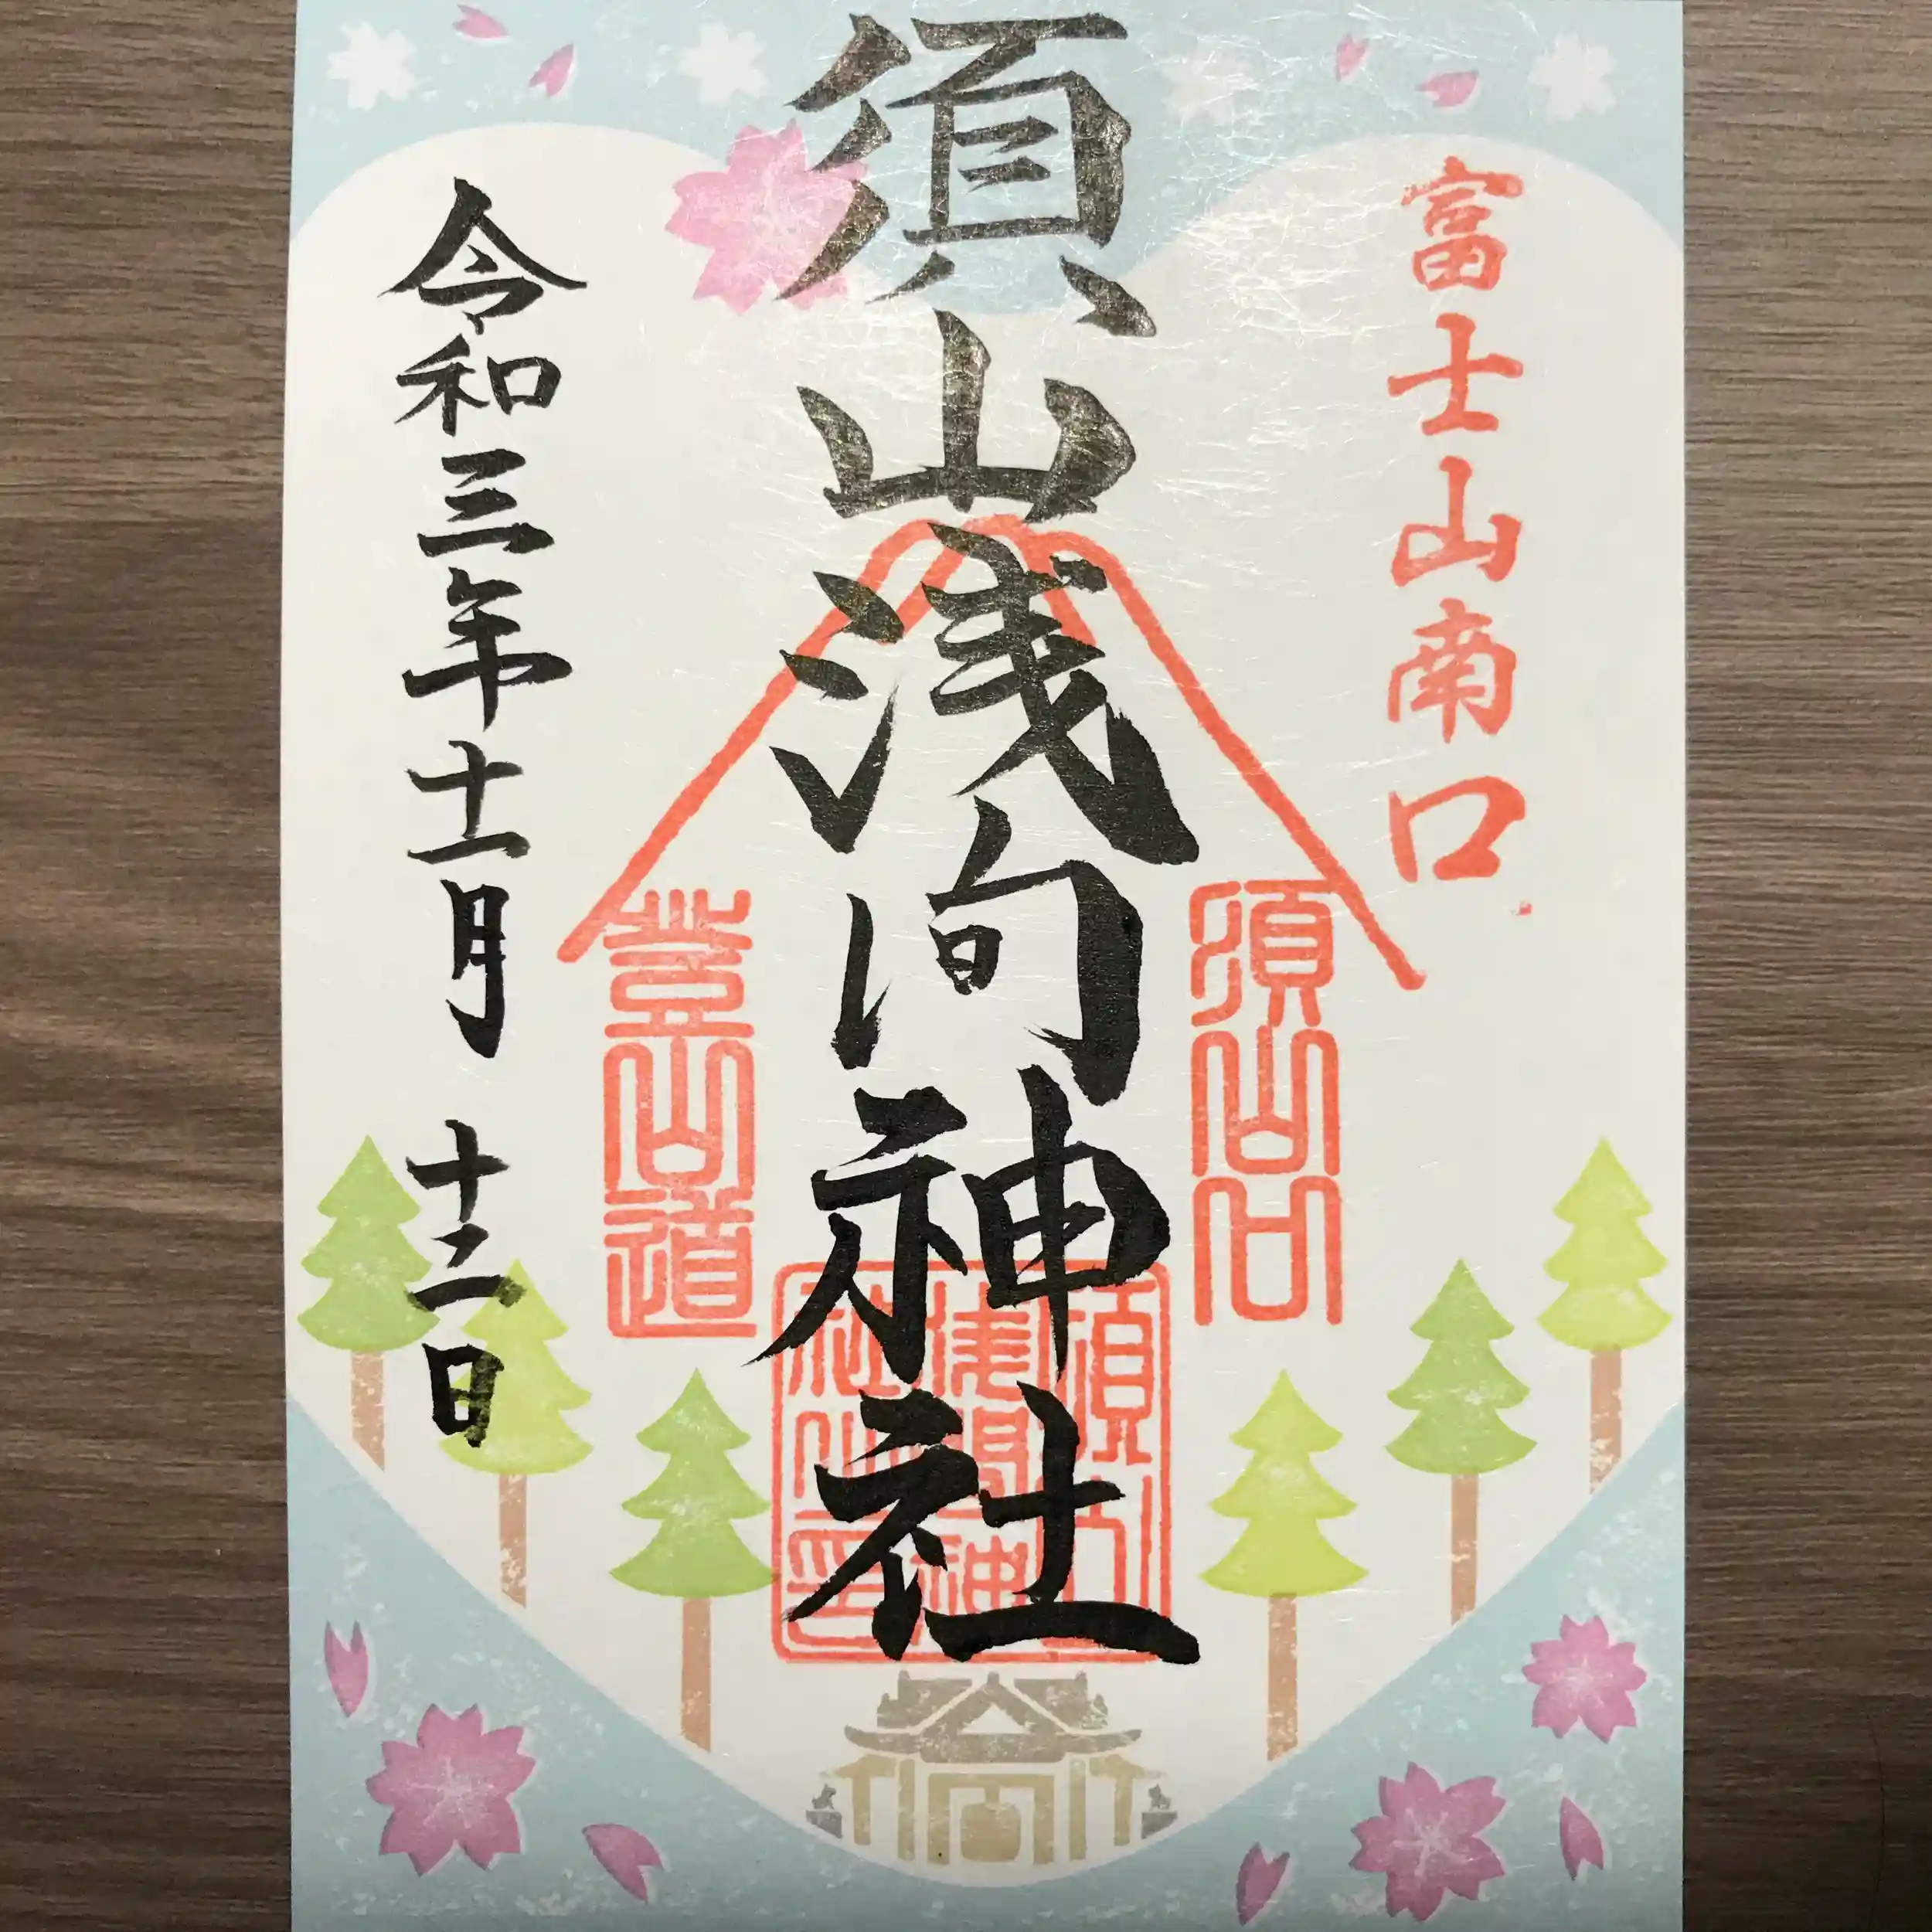 富士山南口
須山口
須山浅間神社
須山浅間神社之印
登山道
令和三年十一月 十二日